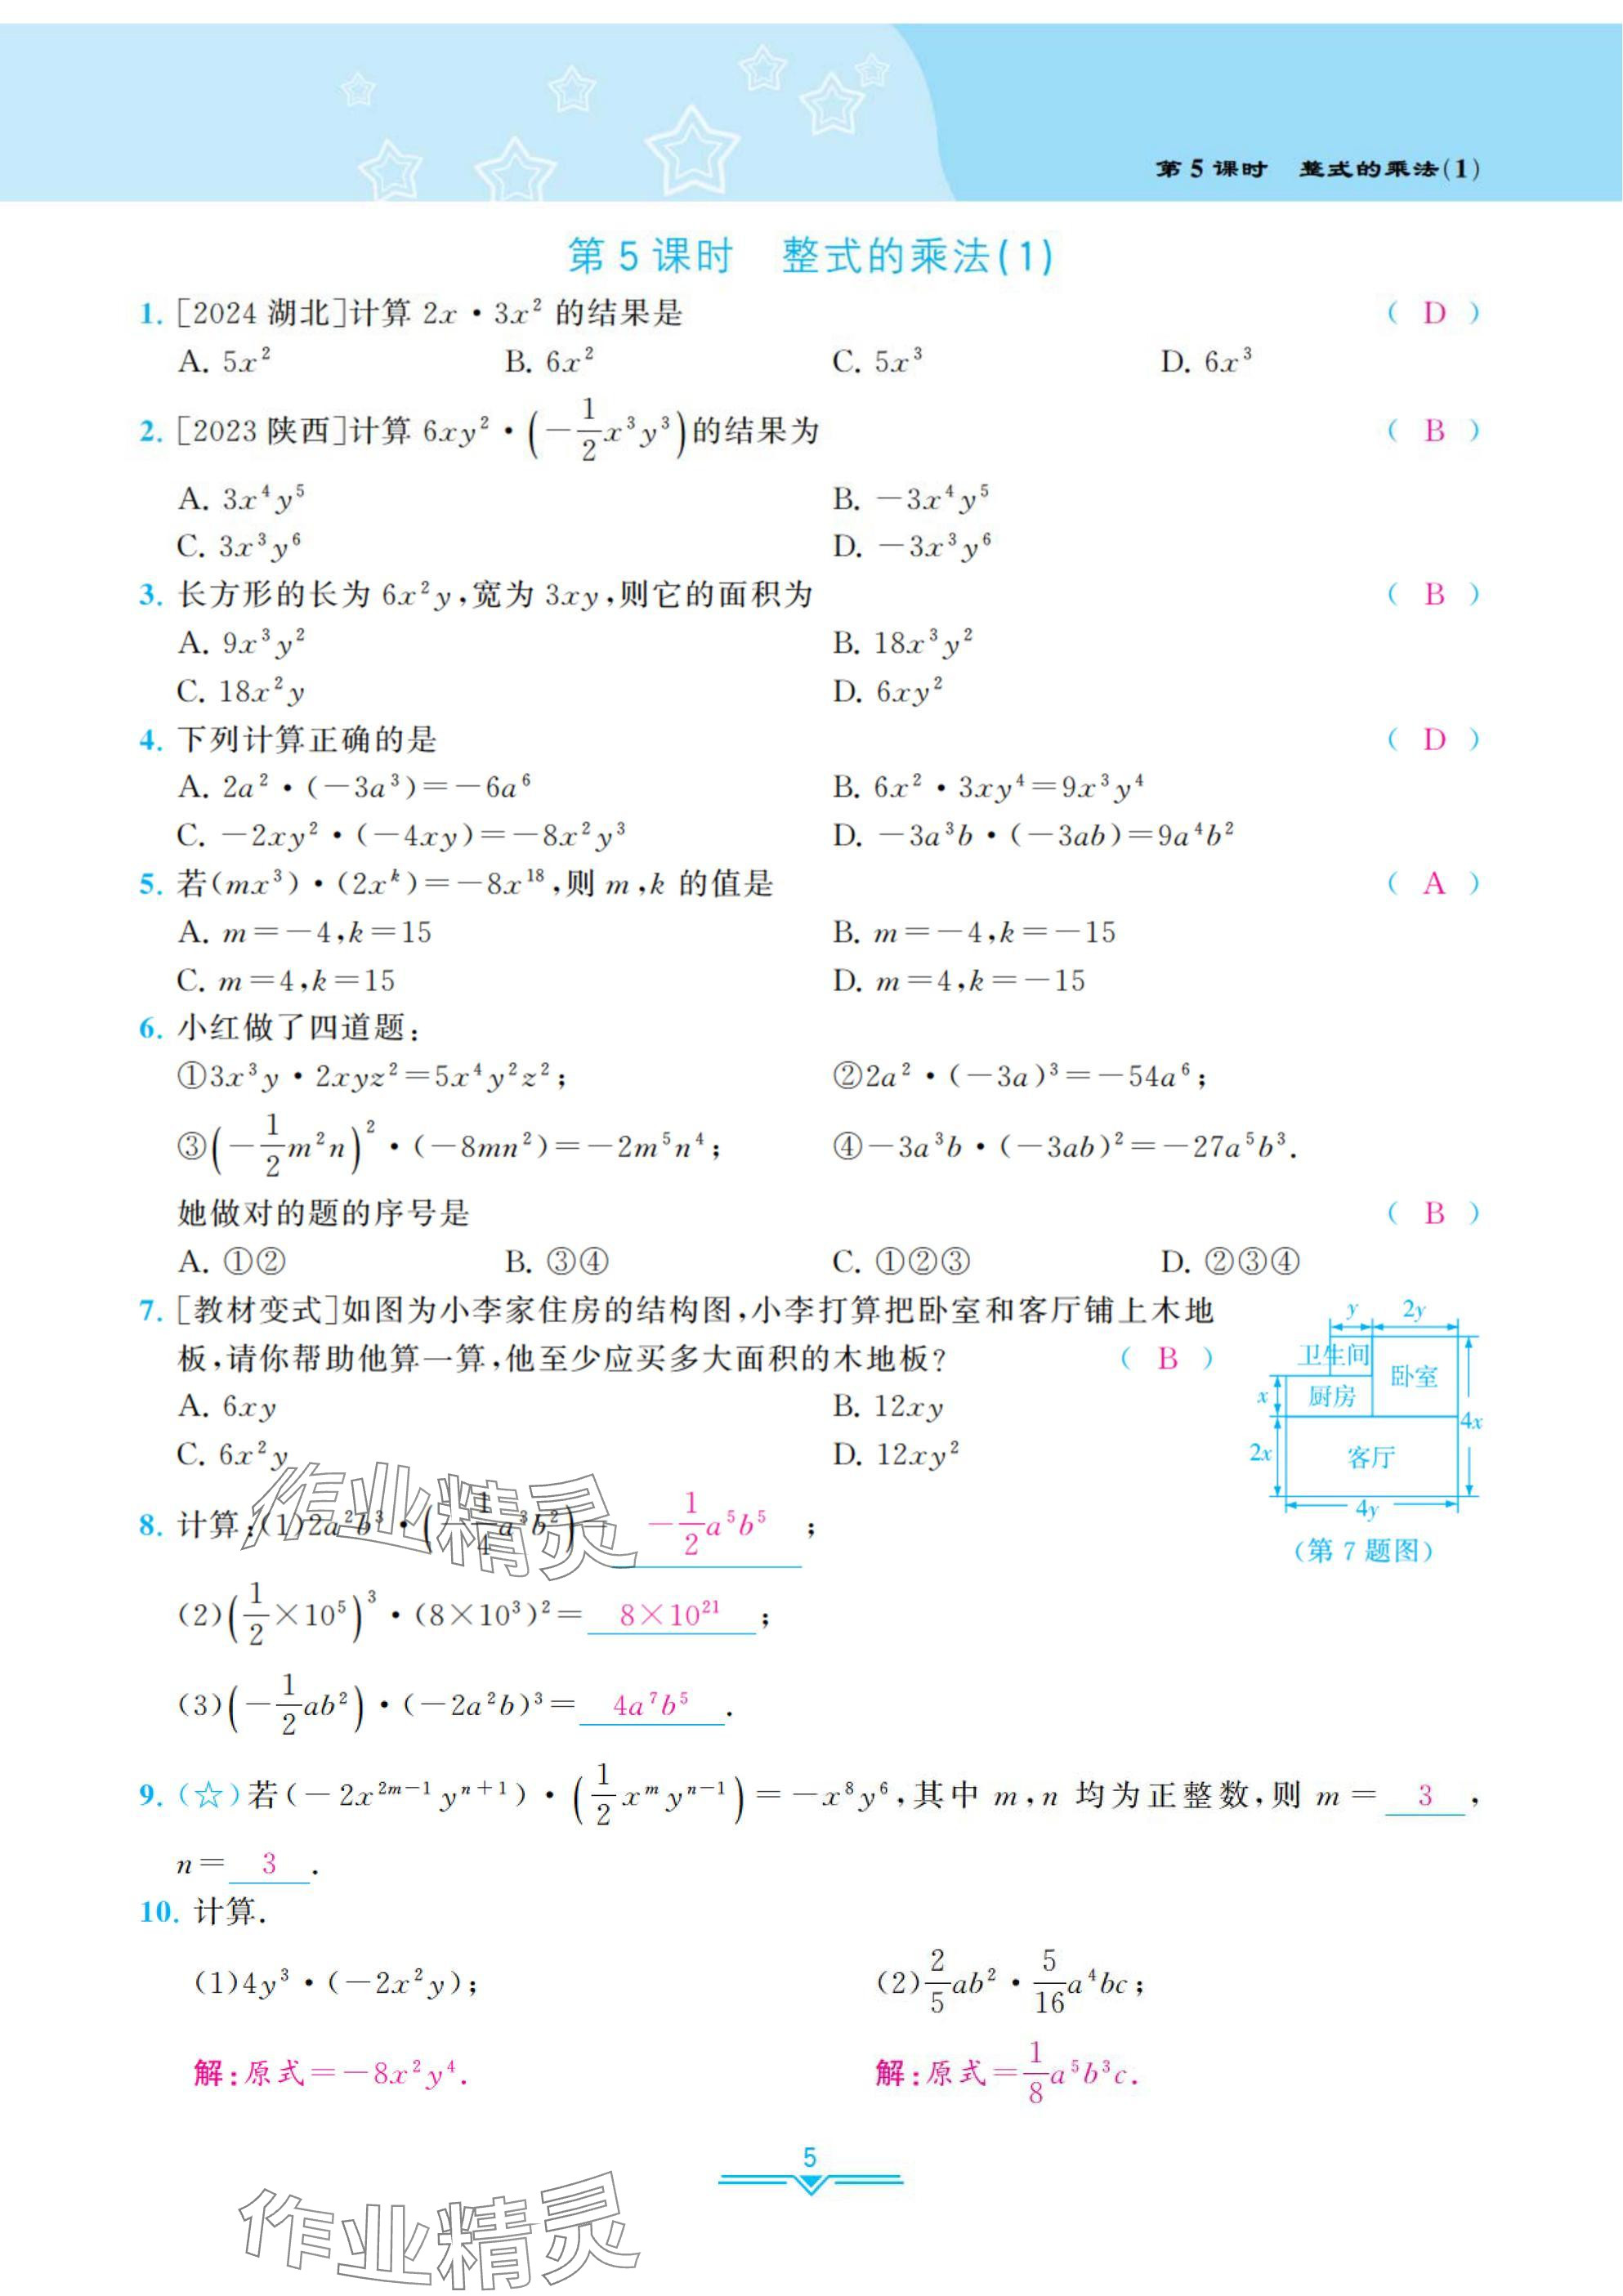 第 5 课时　整式的乘法(1)
第 5 课时　整式的乘法(1)
1. [2024 湖北]计算 2x·3x² 的结果是 ( D )
A. 5x² B. 6x² C. 5x³ D. 6x³
2. [2023 陕西]计算 6xy²·(-1/2x³y³)的结果为 ( B )
A. 3x⁴y⁵ B. -3x⁴y⁵
C. 3x³y⁶ D. -3x³y⁶
3. 长方形的长为 6x²y,宽为 3xy,则它的面积为 ( B )
A. 9x³y² B. 18x³y²
C. 18x²y D. 6xy²
4. 下列计算正确的是 ( D )
A. 2a²·(-3a³)=-6a⁶ B. 6x²·3xy⁴=9x³y⁴
C. -2xy²·(-4xy)=-8x²y³ D. -3a³b·(-3ab)=9a⁴b²
5. 若(mx³)·(2xᵏ)=-8x¹⁸,则 m,k 的值是 ( A )
A. m=-4,k=15 B. m=-4,k=-15
C. m=4,k=15 D. m=4,k=-15
6. 小红做了四道题:
①3x³y·2xyz²=5x⁴y²z²; ②2a²·(-3a)³=-54a⁶;
③(-1/2m²n)²·(-8mn²)=-2m⁵n⁴; ④-3a³b·(-3ab)²=-27a⁵b³.
她做对的题的序号是 ( B )
A. ①② B. ③④ C. ①②③ D. ②③④
7. [教材变式]如图为小李家住房的结构图,小李打算把卧室和客厅铺上木地
板,请你帮助他算一算,他至少应买多大面积的木地板? ( B )
A. 6xy B. 12xy
C. 6x²y D. 12xy²
y 2y
卫生间
卧室
x 厨房
4x
2x 客厅
4y
(第 7 题图)
8. 计算:(1)2a²b³·(-1/4a³b²)= -1/2a⁵b⁵ ;
(2)(1/2×10⁵)³·(8×10³)²= 8×10²¹ ;
(3)(-1/2ab²)·(-2a²b)³= 4a⁷b⁵ .
9. (☆)若(-2x²ᵐ⁻¹yⁿ⁺¹)·(1/2xᵐyⁿ⁻¹)=-x⁸y⁶,其中 m,n 均为正整数,则 m= 3 ,
n= 3 .
10. 计算.
(1)4y³·(-2x²y); (2)2/5ab²·5/16a⁴bc;
解:原式=-8x²y⁴. 解:原式=1/8a⁵b³c.
5
作业精灵
作业精灵